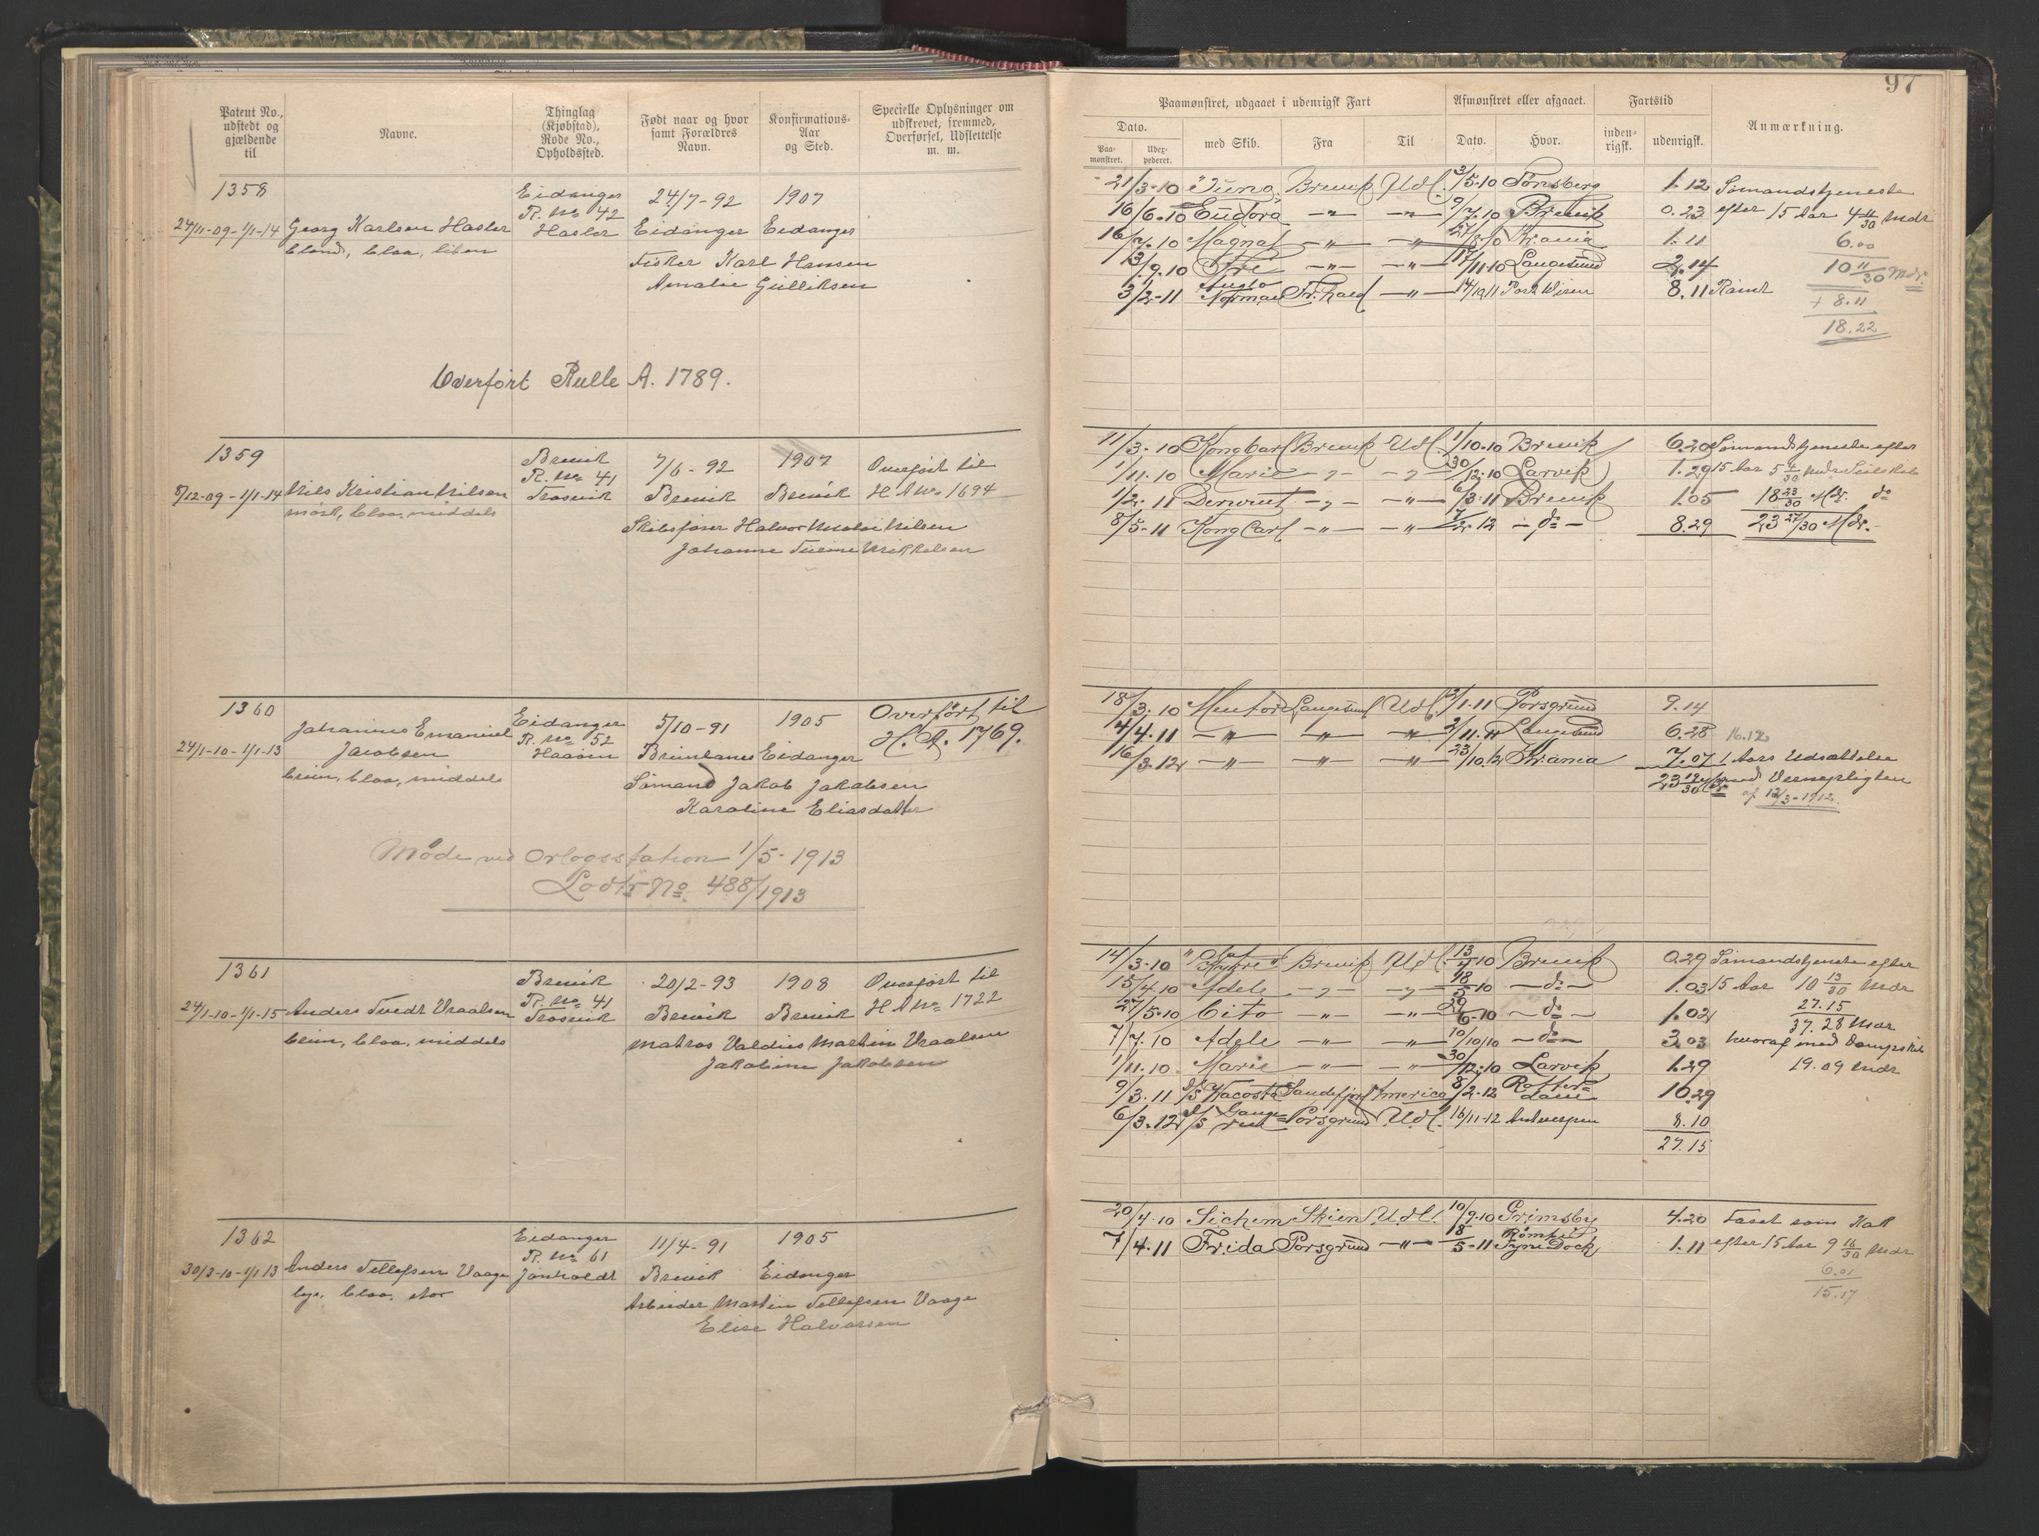 97
Patent No., udstedt og gjældende til
Navne.
Thinglag (Kjøbstad), Rode No., Opholdssted.
Født naar og hvor samt Forældres Navn.
Konfirmations-Aar og Sted.
Specielle Oplysninger om udskrevet, fremmed, Overførsel, Udslettelse m. m.
Paamønstret, udgaaet i udenrigsk Fart
Afmønstret eller afgaaet.
Fartstid
Anmærkning.
Dato.
med Skib.
Fra
Til
Dato.
Hvor.
inden-rigsk.
udenrigsk.
Paa-mønstret.
Udex-pederet.
1358
Eidanger 24/7-92 1907
R. No 42
24/11-09-1/1-14 Georg Karlsen Hasler Hasler Eidanger Eidanger
blond, blaa, liten
Fisker Karl Hansen
Amalie Gulliksen
Overført Rulle A. 1789.
21/3-10 Juno Brevik Udl. 2/5-10 Tønsberg 1.12 Sømandstjeneste
16/6.10 Eudora -"- -"- 9/7.10 Brevik 0.23 efter 15 Aar 4 11/30 Mdr
16/7.10 Magnat -"- -"- 27/8.10 Krania 1.11 6.00
13/9.10 -"- -"- 17/11-10 Langesund 2.14 10 11/30 Mdr.
3/2-11 Norman Fr.hald -"- 8.11 Rømt
+ 8.11
18.22
1359
Brevik 7/6-92 1907 Overført til
R. No 41
8/12-09-1/1-14 Nils Kristian Nilsen Trosvik Brevik Brevik H A No 1694
mørk, blaa, middels
Skibsfører Halvor Nicolai Nilsen
Johanne Mikkelsen
11/3-10 Kong Carl Brevik Udl. 1/10-10 Brevik 6.20 Sømandstjeneste efter
1/11.10 Marie -"- -"- 30/12-10 Larvik 1.29 15 Aar 5 4/30 Mdr Seilskib
1/2.11 Derwent -"- -"- 6/3.11 Brevik 1.05 18 23/30 Mdr. do
8/5-11 Kong Carl -"- -"- 7/2.12 -do- 8.29 23 27/30 Mdr.
1360
Eidanger 5/10-91 1905 Overført til
Johannes Emanuel R. No 52
24/1-10-1/1-13 Jacobsen Haaøen Eidanger H. A. 1769.
brun, blaa, middels
Sømand Jakob Jakobsen
Karoline Eliasdatter
Møde ved Orlogsstation 1/5-1913
Lodtr No. 488/1913
18/3.10 Mentor Langesund Udl. 3/1.11 Porsgrund 9.14
4/4.11 -"- -"- -"- 2/11.11 Langesund 6.28 16.12
16/3.12 -"- -"- -"- 23/10.12 Krania 7.07 1 Aars Udsættelse
23 19/30 med Vernepligten
af 12/3-1912.
1361
Brevik 20/2-93 1908 Overført til
R. No 41
24/1-10-1/1-15 Anders Tvedt Vraalsen Trosvik Brevik Brevik H A No 1722
brun, blaa, middels
Matros Valdius Martin Vraalsen
Jakobine Jakobsen
14/3-10 Olaf Kyrre Brevik Udl. 13/4-10 Brevik 0.29 Sømandstjeneste efter
15/4.10 Adele -"- -"- 18/5-10 -do- 1.03 15 Aar 10 13/30 Mdr
27/5-10 Cito -"- -"- 29/6-10 -do- 1.02 27.15
7/7.10 Adele -"- -"- 10/10/10 -do- 3.03 37.28 Mdr
hvoraf med Dampskib
1/11.10 Marie -"- -"- 30/12.10 Larvik 1.29 19.09 Mdr
9/3.11 D/S Sandefjord America 8/2-12 Rotterdam 10.29
6/3.12 Porsgrund Udl. 16/11-12 Antwerpen 8.10
27.15
1362
Eidanger 11/4-91 1905
R. No 61
30/3-10-1/1 13 Anders Tellefsen Vaage Jønholdt Brevik Eidanger
lys, blaa, stor
Arbeider Martin Tellefsen Vaage
Elise Halvorsen
20/4-10 Sichem Skien Udl. 10/9-10 Grimsby 4.20 Faset som Kok
7/4.11 Frida Porsgrund -"- 18/5-11 Rømt i Tyne Dock 1.11 efter 15 Aar 9 16/30 Mdr
6.01
15.17